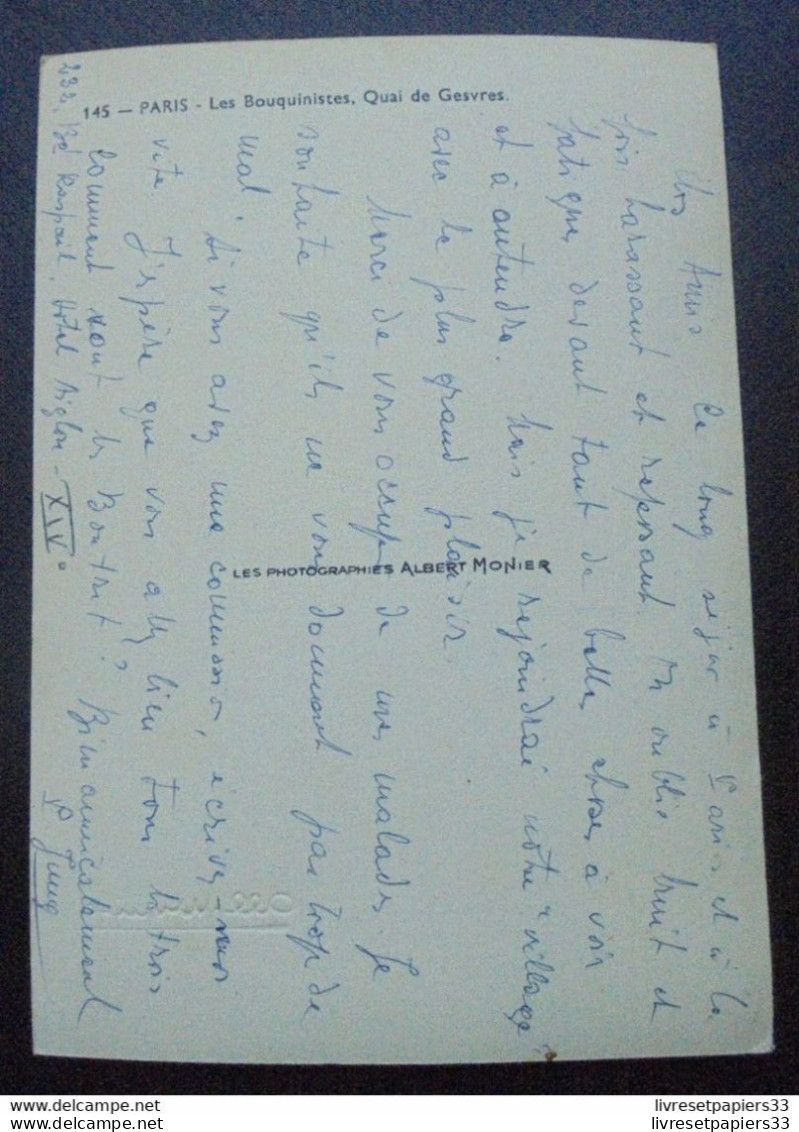 145 — PARIS - Les Bouquinistes, Quai de Gesvres.
LES PHOTOGRAPHIES ALBERT MONIER
Ce long séjour à Paris est à la
fois harassant et reposant. On oublie bruit et
fatigue devant tant de belles choses à voir
et à entendre. Mais je rejoindrai notre "village"
avec le plus grand plaisir.
Merci de vous occuper de mes malades. Je
souhaite qu'ils ne vous donnent pas trop de
mal. Si vous avez une commission, écrivez-moi
vite. J'espère que vous allez bien tous les trois
Comment vont les Boutrit? Bien amicalement
P Jung
232, Bd Raspail, Hôtel Aiglon - XIV°
livresetpapiers33
livresetpapiers33
livresetpapiers33
livresetpapiers33